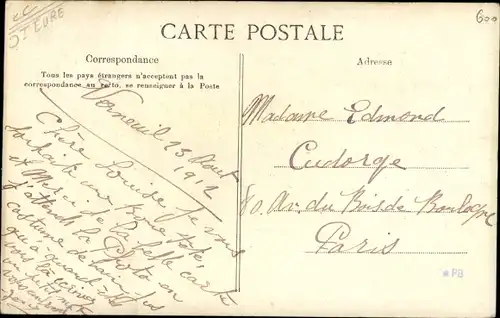 EC
27 EURE
600
CARTE POSTALE
Correspondance
Tous les pays étrangers n'acceptent pas la
correspondance au recto, se renseigner à la Poste
Adresse
Verneuil 23 Aout
1912
Chère Louise je vous
souhaite une bonne fête,
et Merci de la belle carte
j'attend la Photo en
costume de bain
Madame Edmond
Cudorge
80. Av. du Bois de Boulogne
Paris
PB